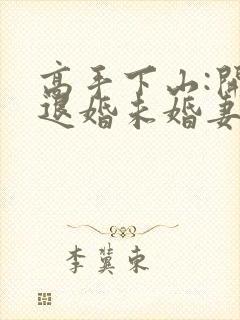 高手下山:開
退婚未婚妻
李冀東